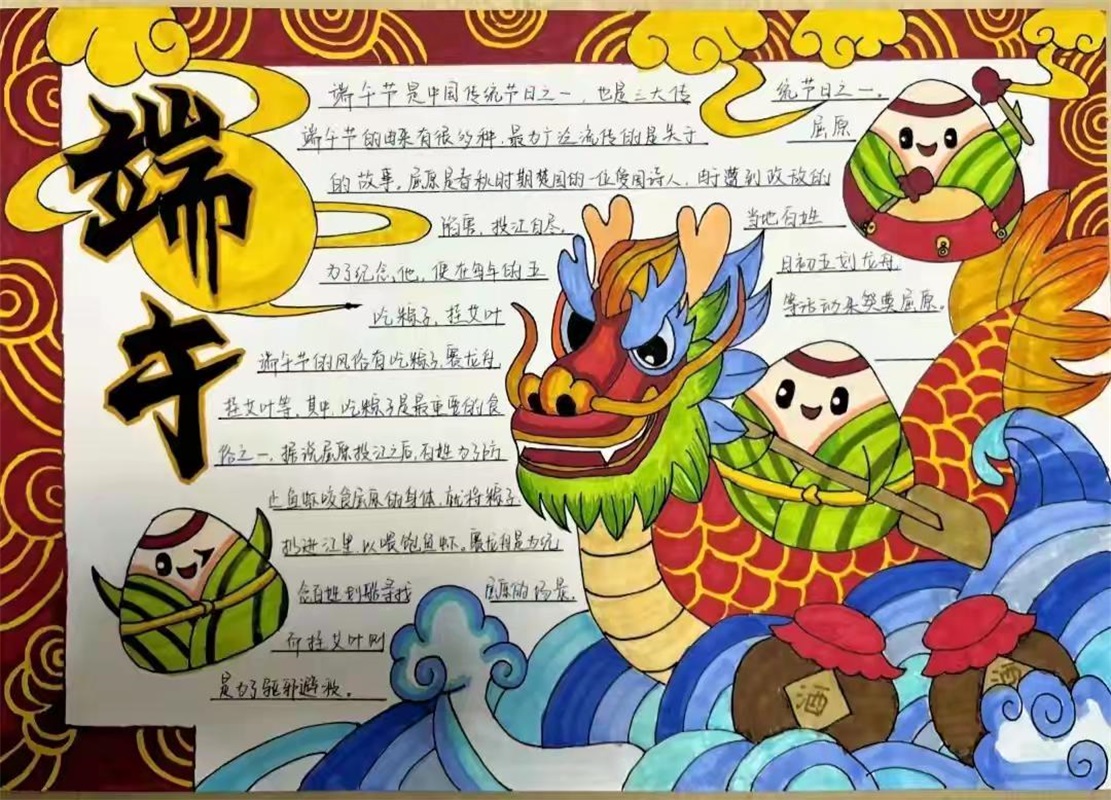 端午
端午节是中国传统节日之一，也是三大传统节日之一。
端午节的由来有很多种，最为广泛流传的是关于屈原
的故事。屈原是春秋时期楚国的一位爱国诗人，由于遭到政敌的
陷害，投江自尽。当地百姓
为了纪念他，便在每年的五月初五划龙舟，
吃粽子，挂艾叶等活动来祭奠屈原。
端午节的风俗有吃粽子，赛龙舟，
挂艾叶等，其中，吃粽子是最重要的食
俗之一，据说屈原投江之后，百姓为了防
止鱼虾咬食屈原的身体，就将粽子
扔进江里，以喂饱鱼虾。赛龙舟是为纪
念百姓划船寻找屈原的场景。
而挂艾叶则
是为了驱邪避
酒
酒